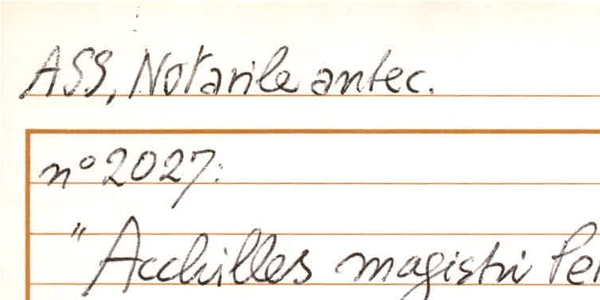 ASS, Notarile antec.
n° 2027:
"Acchilles magistri